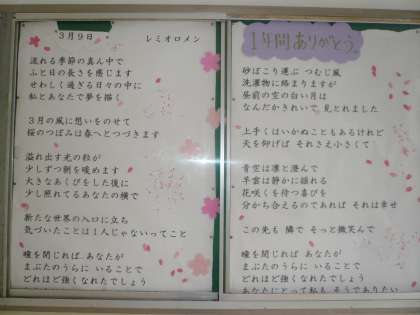 3月9日
レミオロメン
流れる季節の真ん中で
ふと日の長さを感じます
せわしく過ぎる日々の中に
私とあなたで夢を描く
3月の風に想いをのせて
桜のつぼみは春へとつづきます
溢れ出す光の粒が
少しずつ朝を暖めます
大きなあくびをした後に
少し照れてるあなたの横で
新たな世界の入口に立ち
気づいたことは1人じゃないってこと
瞳を閉じれば あなたが
まぶたのうらに いることで
どれほど強くなれたでしょう
1年間ありがとう
砂ぼこり運ぶ つむじ風
洗濯物に絡まりますが
昼前の空の白い月は
なんだかきれいで 見とれました
上手くはいかぬこともあるけれど
天を仰げば それさえ小さくて
青空は凛と澄んで
羊雲は静かに揺れる
花咲くを待つ喜びを
分かち合えるのであれば それは幸せ
この先も 隣で そっと微笑んで
瞳を閉じれば あなたが
まぶたのうらに いることで
どれほど強くなれたでしょう
あなたにとって私も そうでありたい